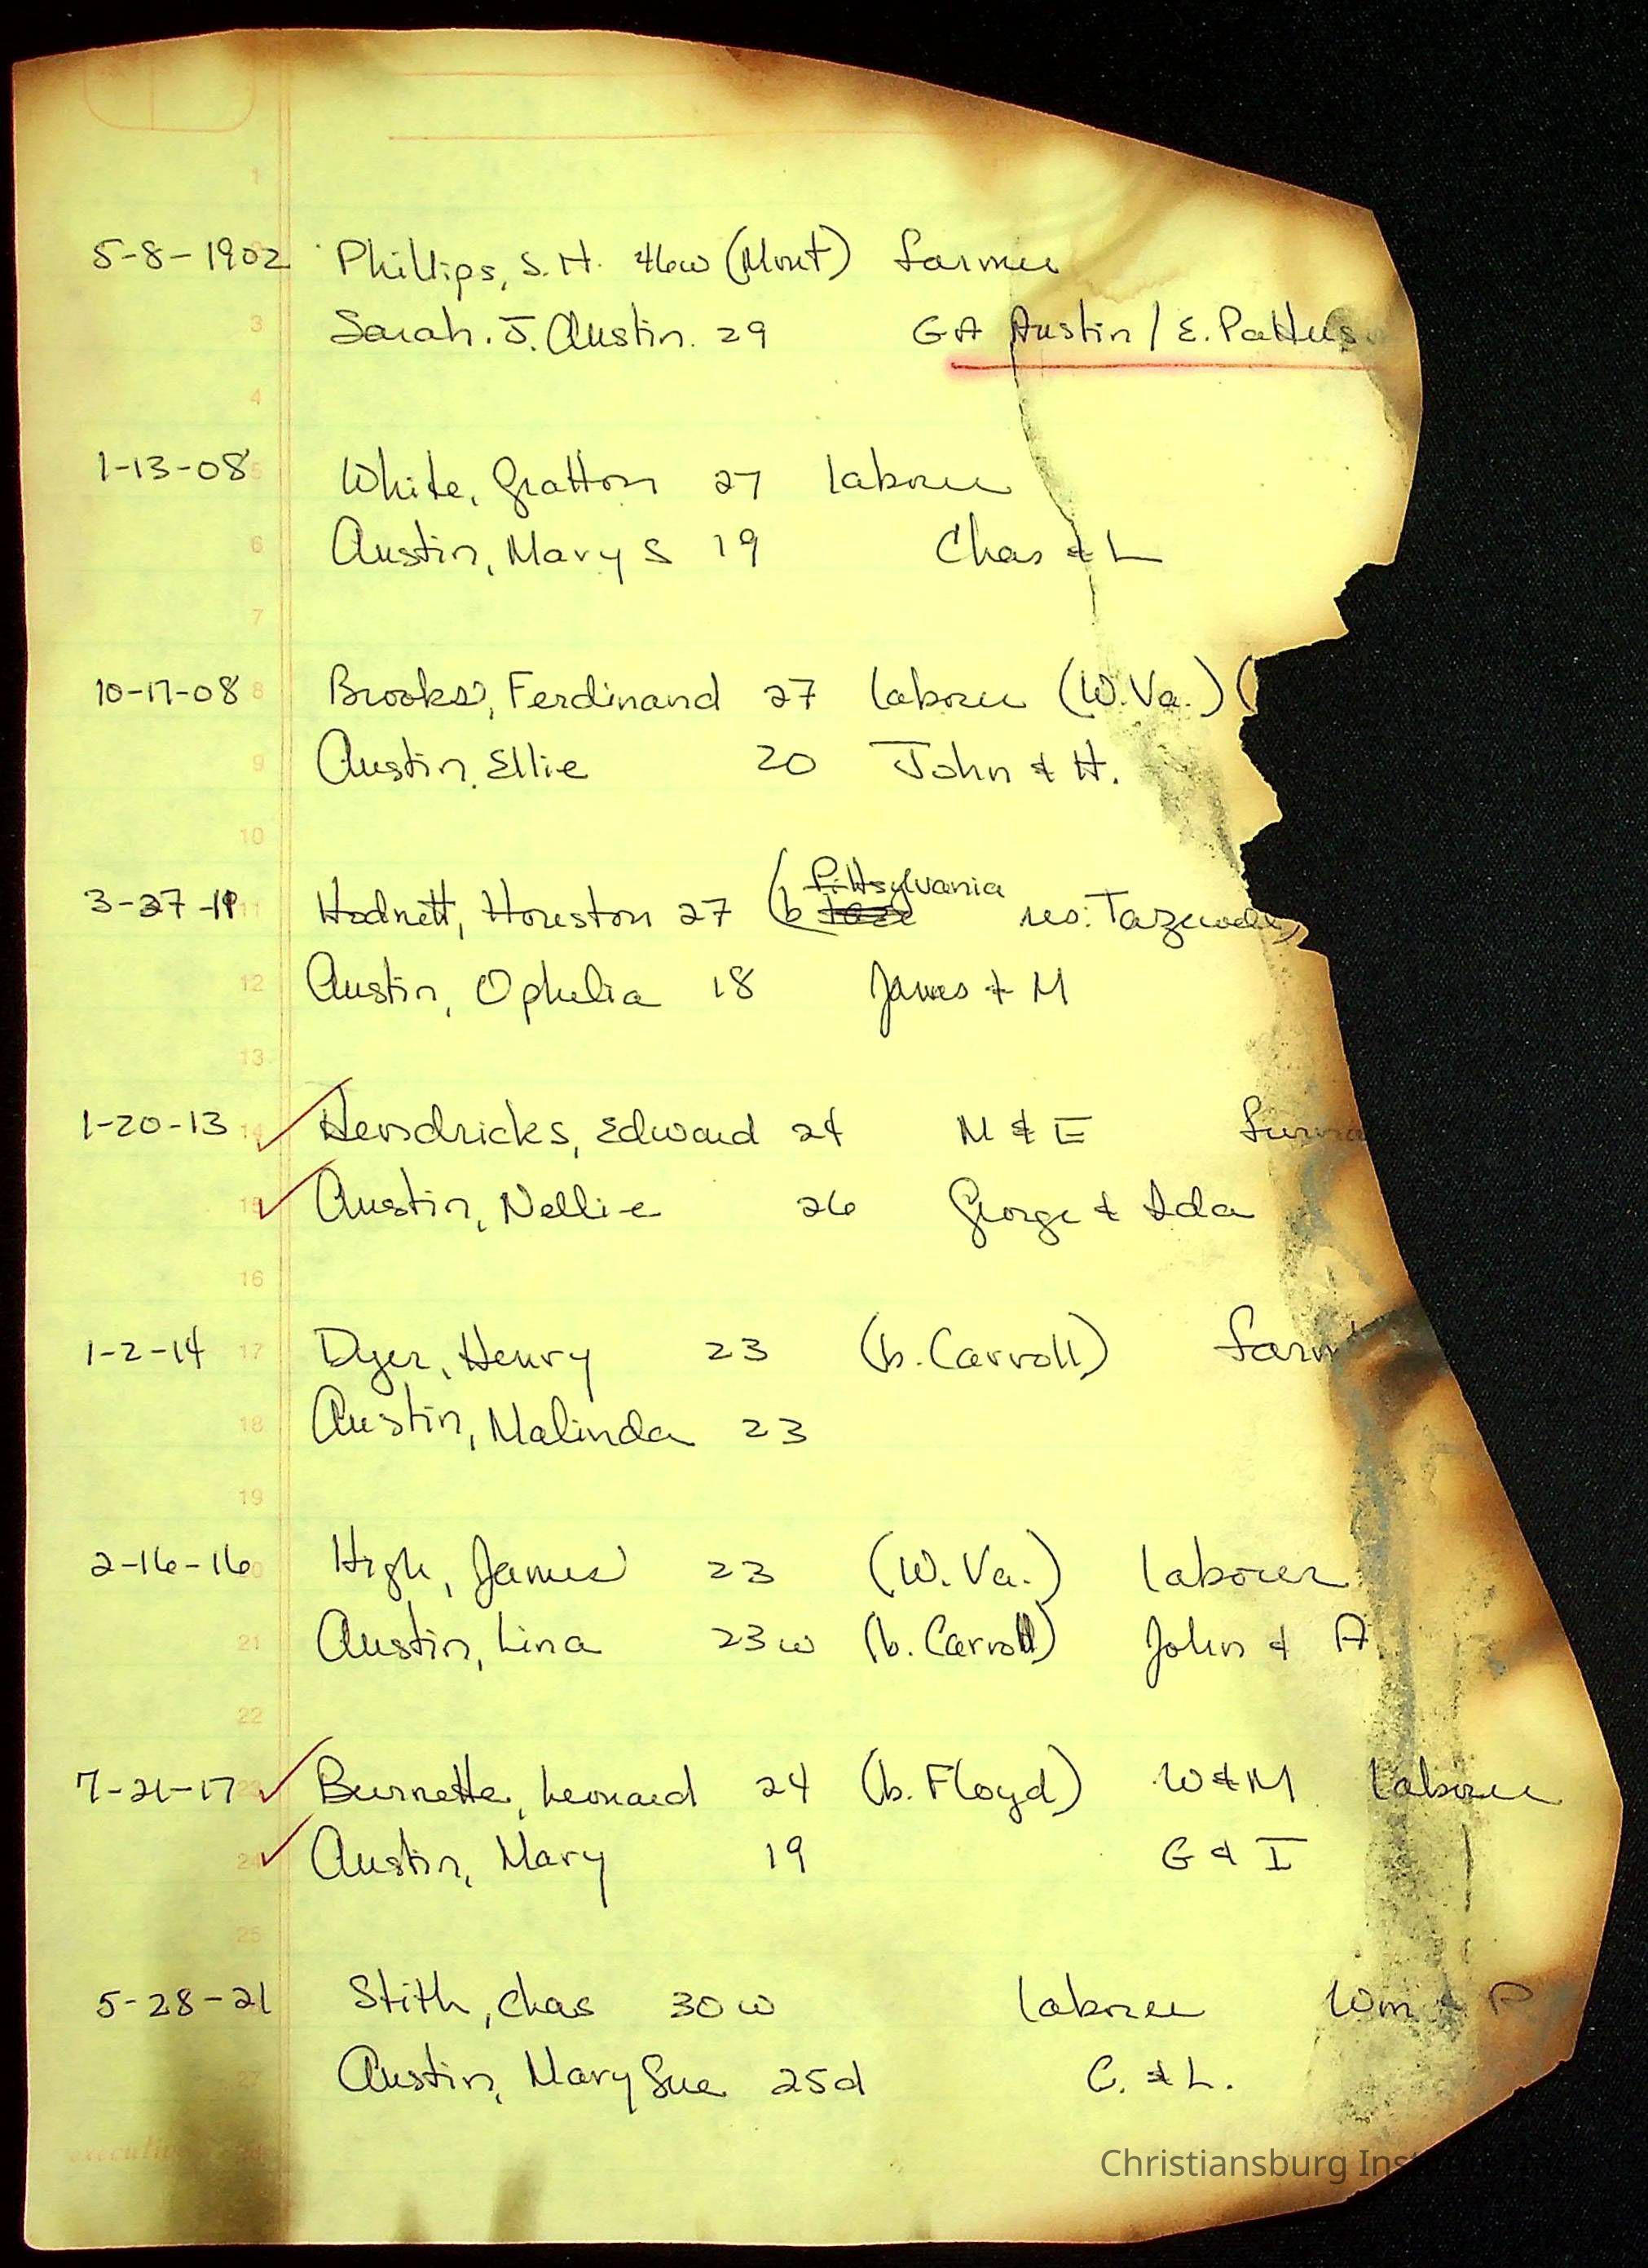 5-8-1902 Phillips, S. H. 46w (Mont) farmer
Sarah. J. Austin. 29 GA Austin / E.
1-13-08 White, Gratton 27 laborer
Austin, Mary S 19 Chas & L
10-17-08 Brooks, Ferdinand 27 laborer (W.Va.) (
Austin, Ellie 20 John & H.
Pittsylvania
3-27-11 Hodnett, Houston 27 (b res. Tazewell)
Austin, Ophelia 18 James & M
1-20-13 Hendricks, Edward 24 M & E
Austin, Nellie 26 George & Ida
1-2-14 Dyer, Henry 23 (b. Carroll) farm
Austin, Malinda 23
2-16-16 High, James 23 (W. Va.) laborer
Austin, Lina 23w (b. Carroll) John & A
7-21-17 Burnette, Leonard 24 (b. Floyd) W & M laborer
Austin, Mary 19 G & I
5-28-21 Stith, Chas 30w laborer Wm & P
Austin, Mary Sue 25d C. & L.
Christiansburg